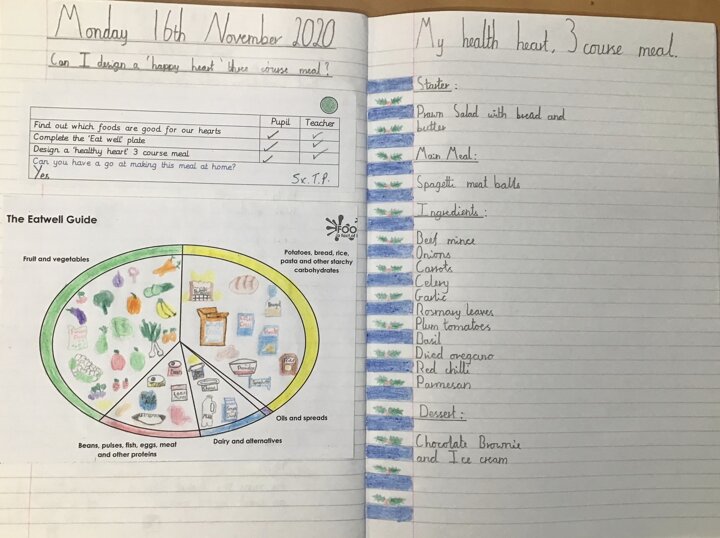 Monday 16th November 2020
Can I design a 'happy heart' three course meal?
Pupil Teacher
Find out which foods are good for our hearts
Complete the 'Eat well' plate
Design a 'healthy heart' 3 course meal
Can you have a go at making this meal at home?
Yes
Sx.T.P.
The Eatwell Guide
FOO
Fruit and vegetables
Potatoes, bread, rice,
pasta and other starchy
carbohydrates
Oils and spreads
Dairy and alternatives
Beans, pulses, fish, eggs, meat
and other proteins
My health heart, 3 course meal.
Starter:
Prawn Salad with bread and
butter
Main Meal:
Spagetti meat balls
Ingredients:
Beef mince
Onions
Carrots
Celery
Garlic
Rosmary leaves
Plum tomatoes
Basil
Dried oregano
Red chilli
Parmesan
Dessert:
Chocolate Brownie
and Ice cream